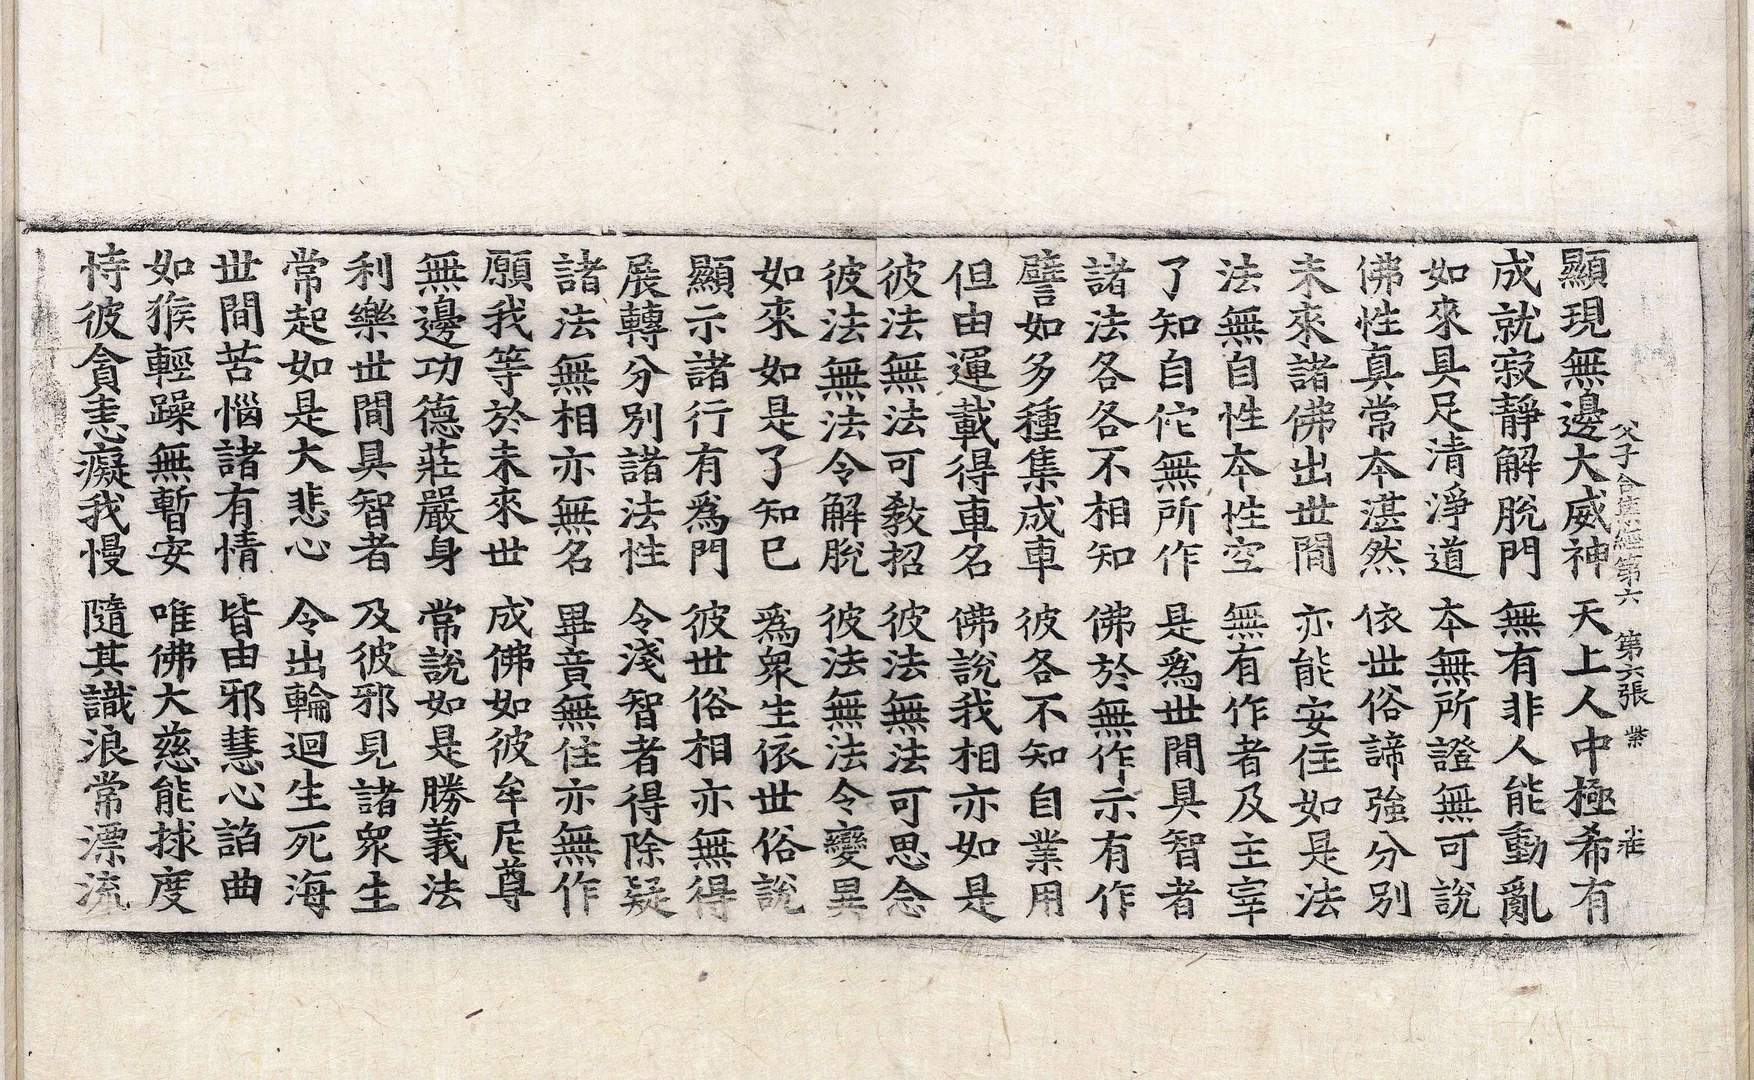 父子合集經第六 第六張 業
顯現無邊大威神 天上人中極希有
成就寂靜解脫門 無有非人能動亂
如來具足清淨道 本無所證無可說
佛性真常本湛然 依世俗諦強分別
未來諸佛出世間 亦能安住如是法
法無自性本性空 無有作者及主宰
了知自佗無所作 是爲世間具智者
諸法各各不相知 佛於無作示有作
譬如多種集成車 彼各不知自業用
但由運載得車名 佛說我相亦如是
彼法無法可敎招 彼法無法可思念
彼法無法令解脫 彼法無法令變異
如來如是了知已 爲衆生依世俗說
顯示諸行有爲門 彼世俗相亦無得
展轉分別諸法性 令淺智者得除疑
諸法無相亦無名 畢竟無住亦無作
願我等於未來世 成佛如彼牟尼尊
無邊功德莊嚴身 常說如是勝義法
利樂世間具智者 及彼邪見諸衆生
常起如是大悲心 令出輪迴生死海
世間苦惱諸有情 皆由邪慧心諂曲
如猴輕躁無暫安 唯佛大慈能捄度
恃彼貪恚癡我慢 隨其識浪常漂流